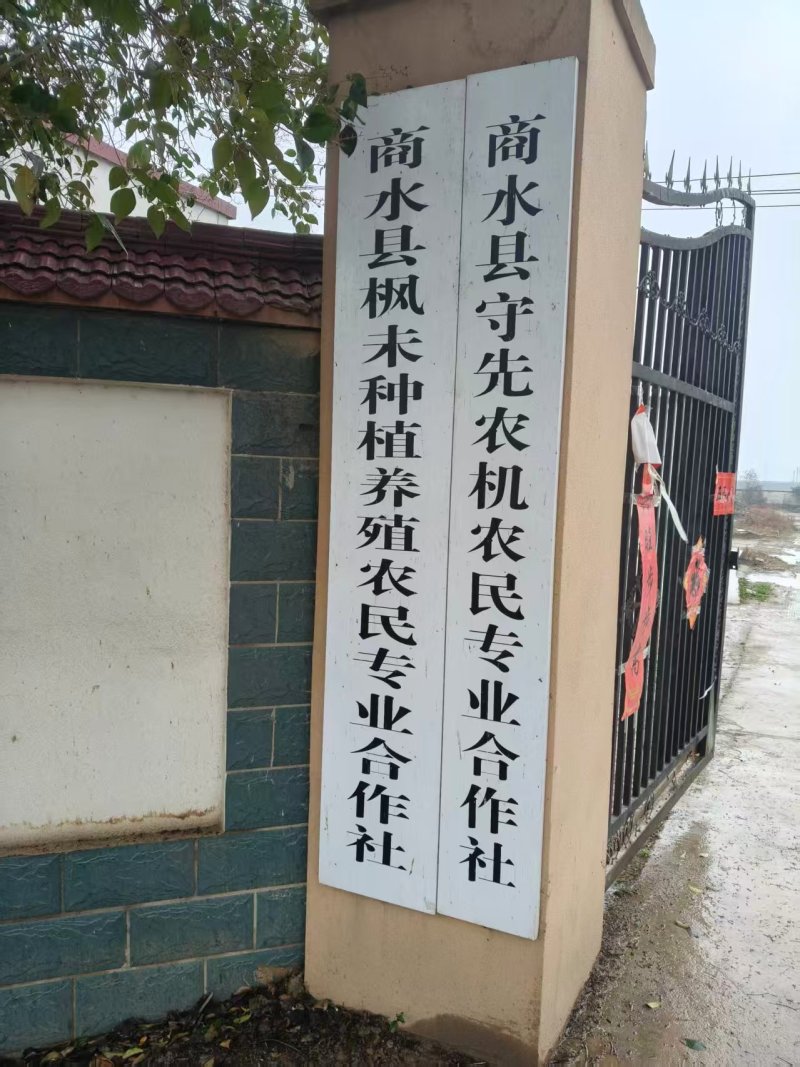 商水县守先农机农民专业合作社
商水县枫未种植养殖农民专业合作社